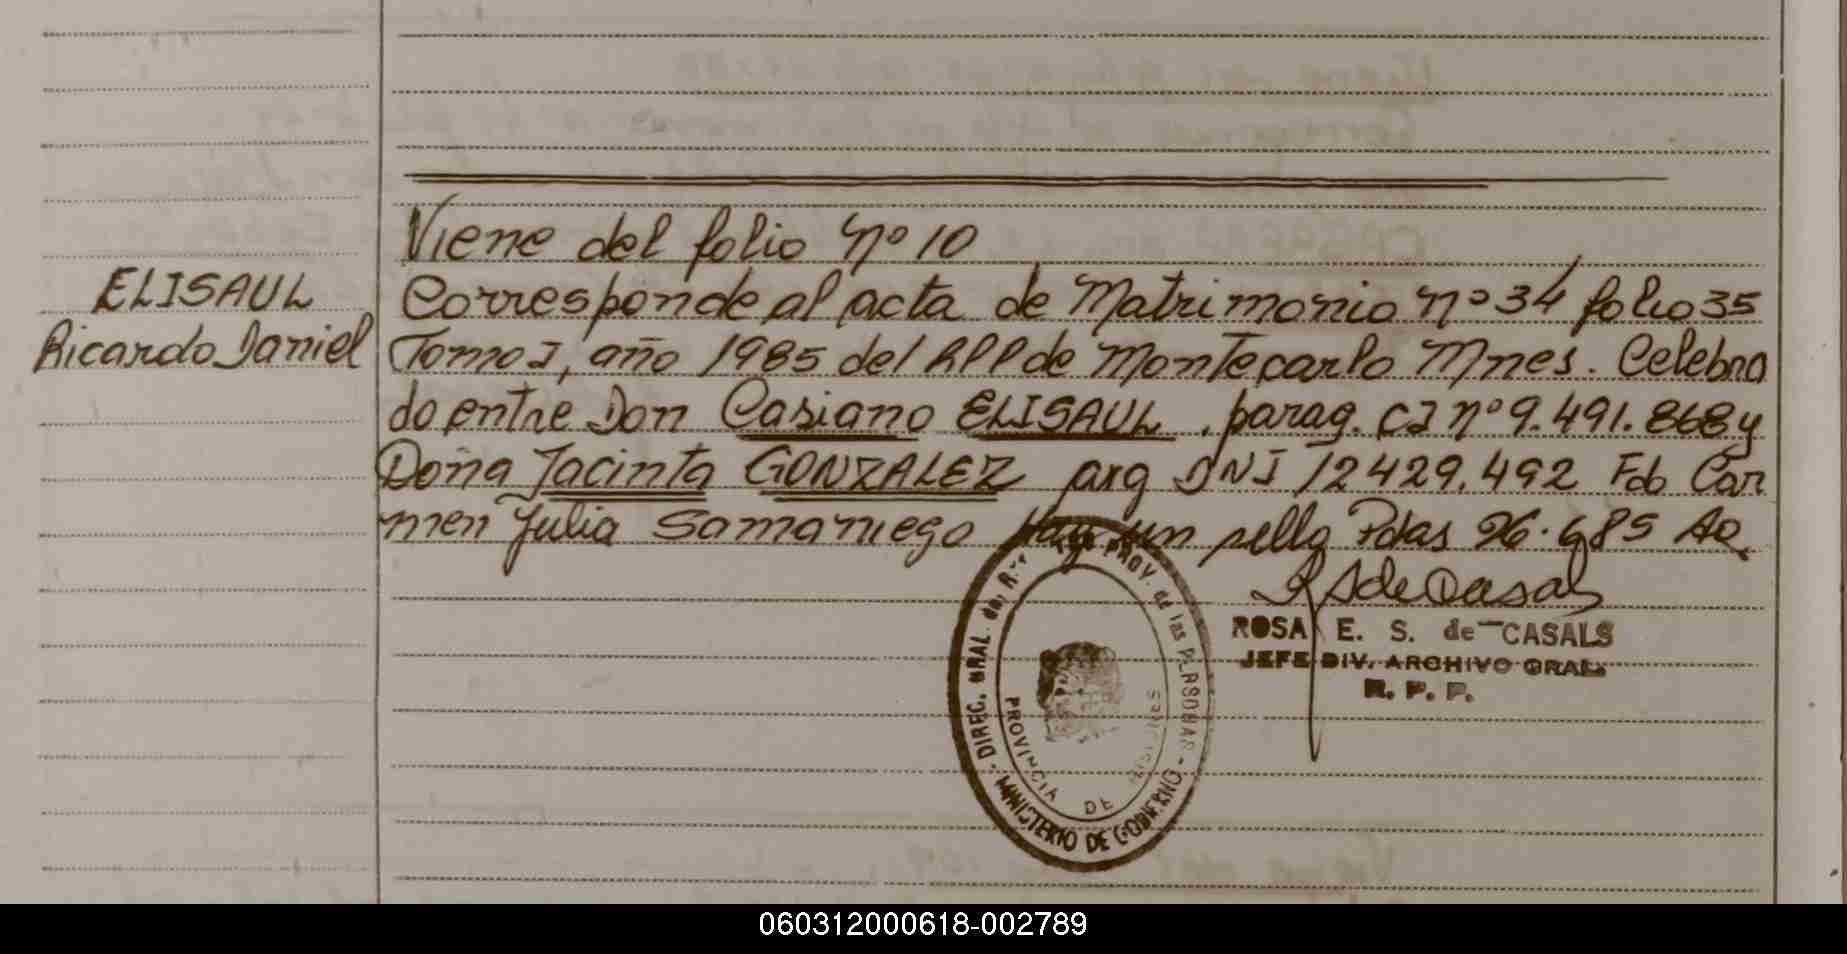 Viene del folio nº 10
ELISAUL
Ricardo Daniel
Corresponde al acta de Matrimonio nº 34 folio 35
Tomo I, año 1985 del RPP de Montecarlo Mnes. Celebra
do entre Don Casiano ELISAUL, parag. CI nº 9.491.868 y
Doña Jacinta GONZALEZ arg DNI 12429.492 Fdo Car
men Julia Samaniego Hay un sello Pdas 26.685 
RSdeCasals
ROSA E. S. de CASALS
JEFE DIV. ARCHIVO GRAL.
R. P. P.
DIREC. GRAL. del R. PROV. de las PERSONAS
MINISTERIO DE GOBIERNO
PROVINCIA DE MISIONES
060312000618-002789